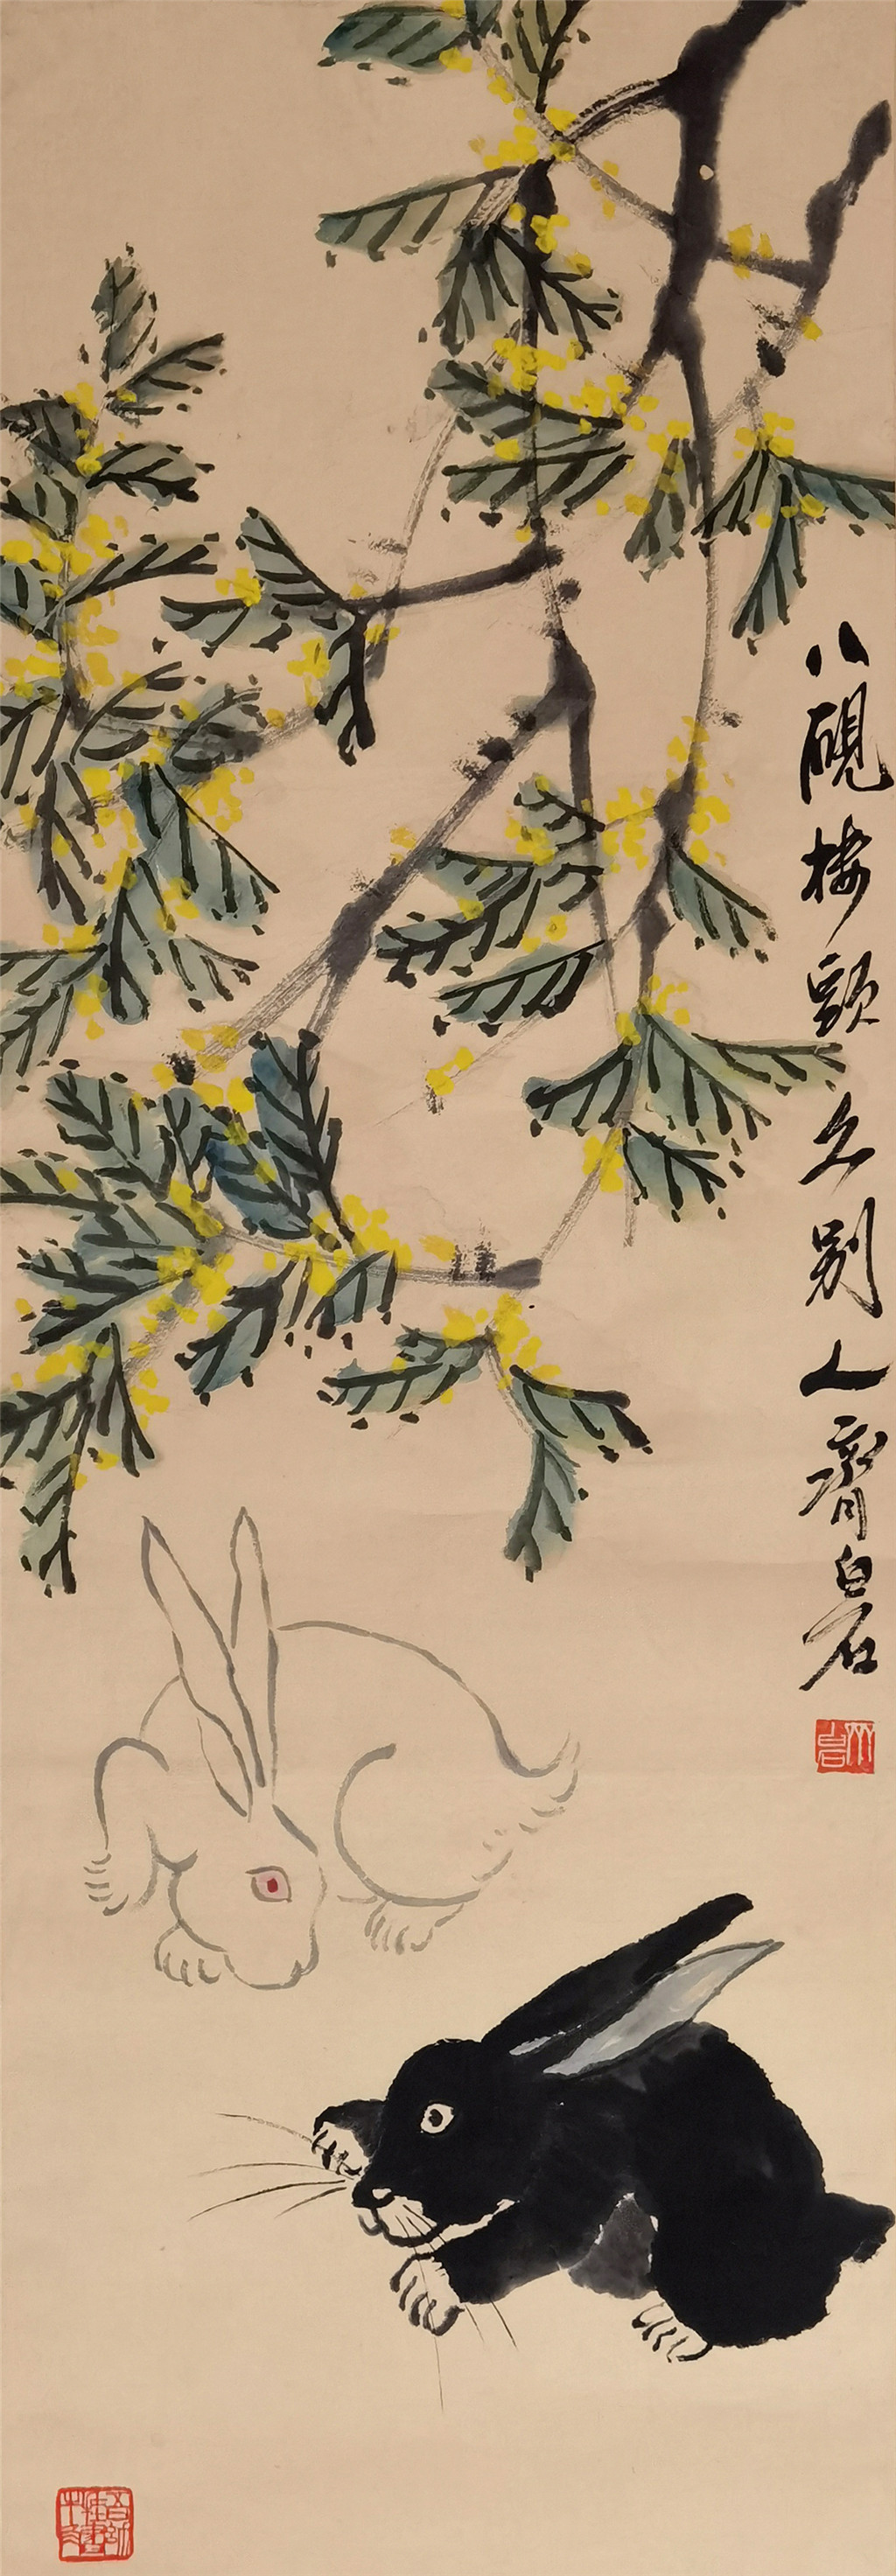 八硯樓頭久别人齊白石